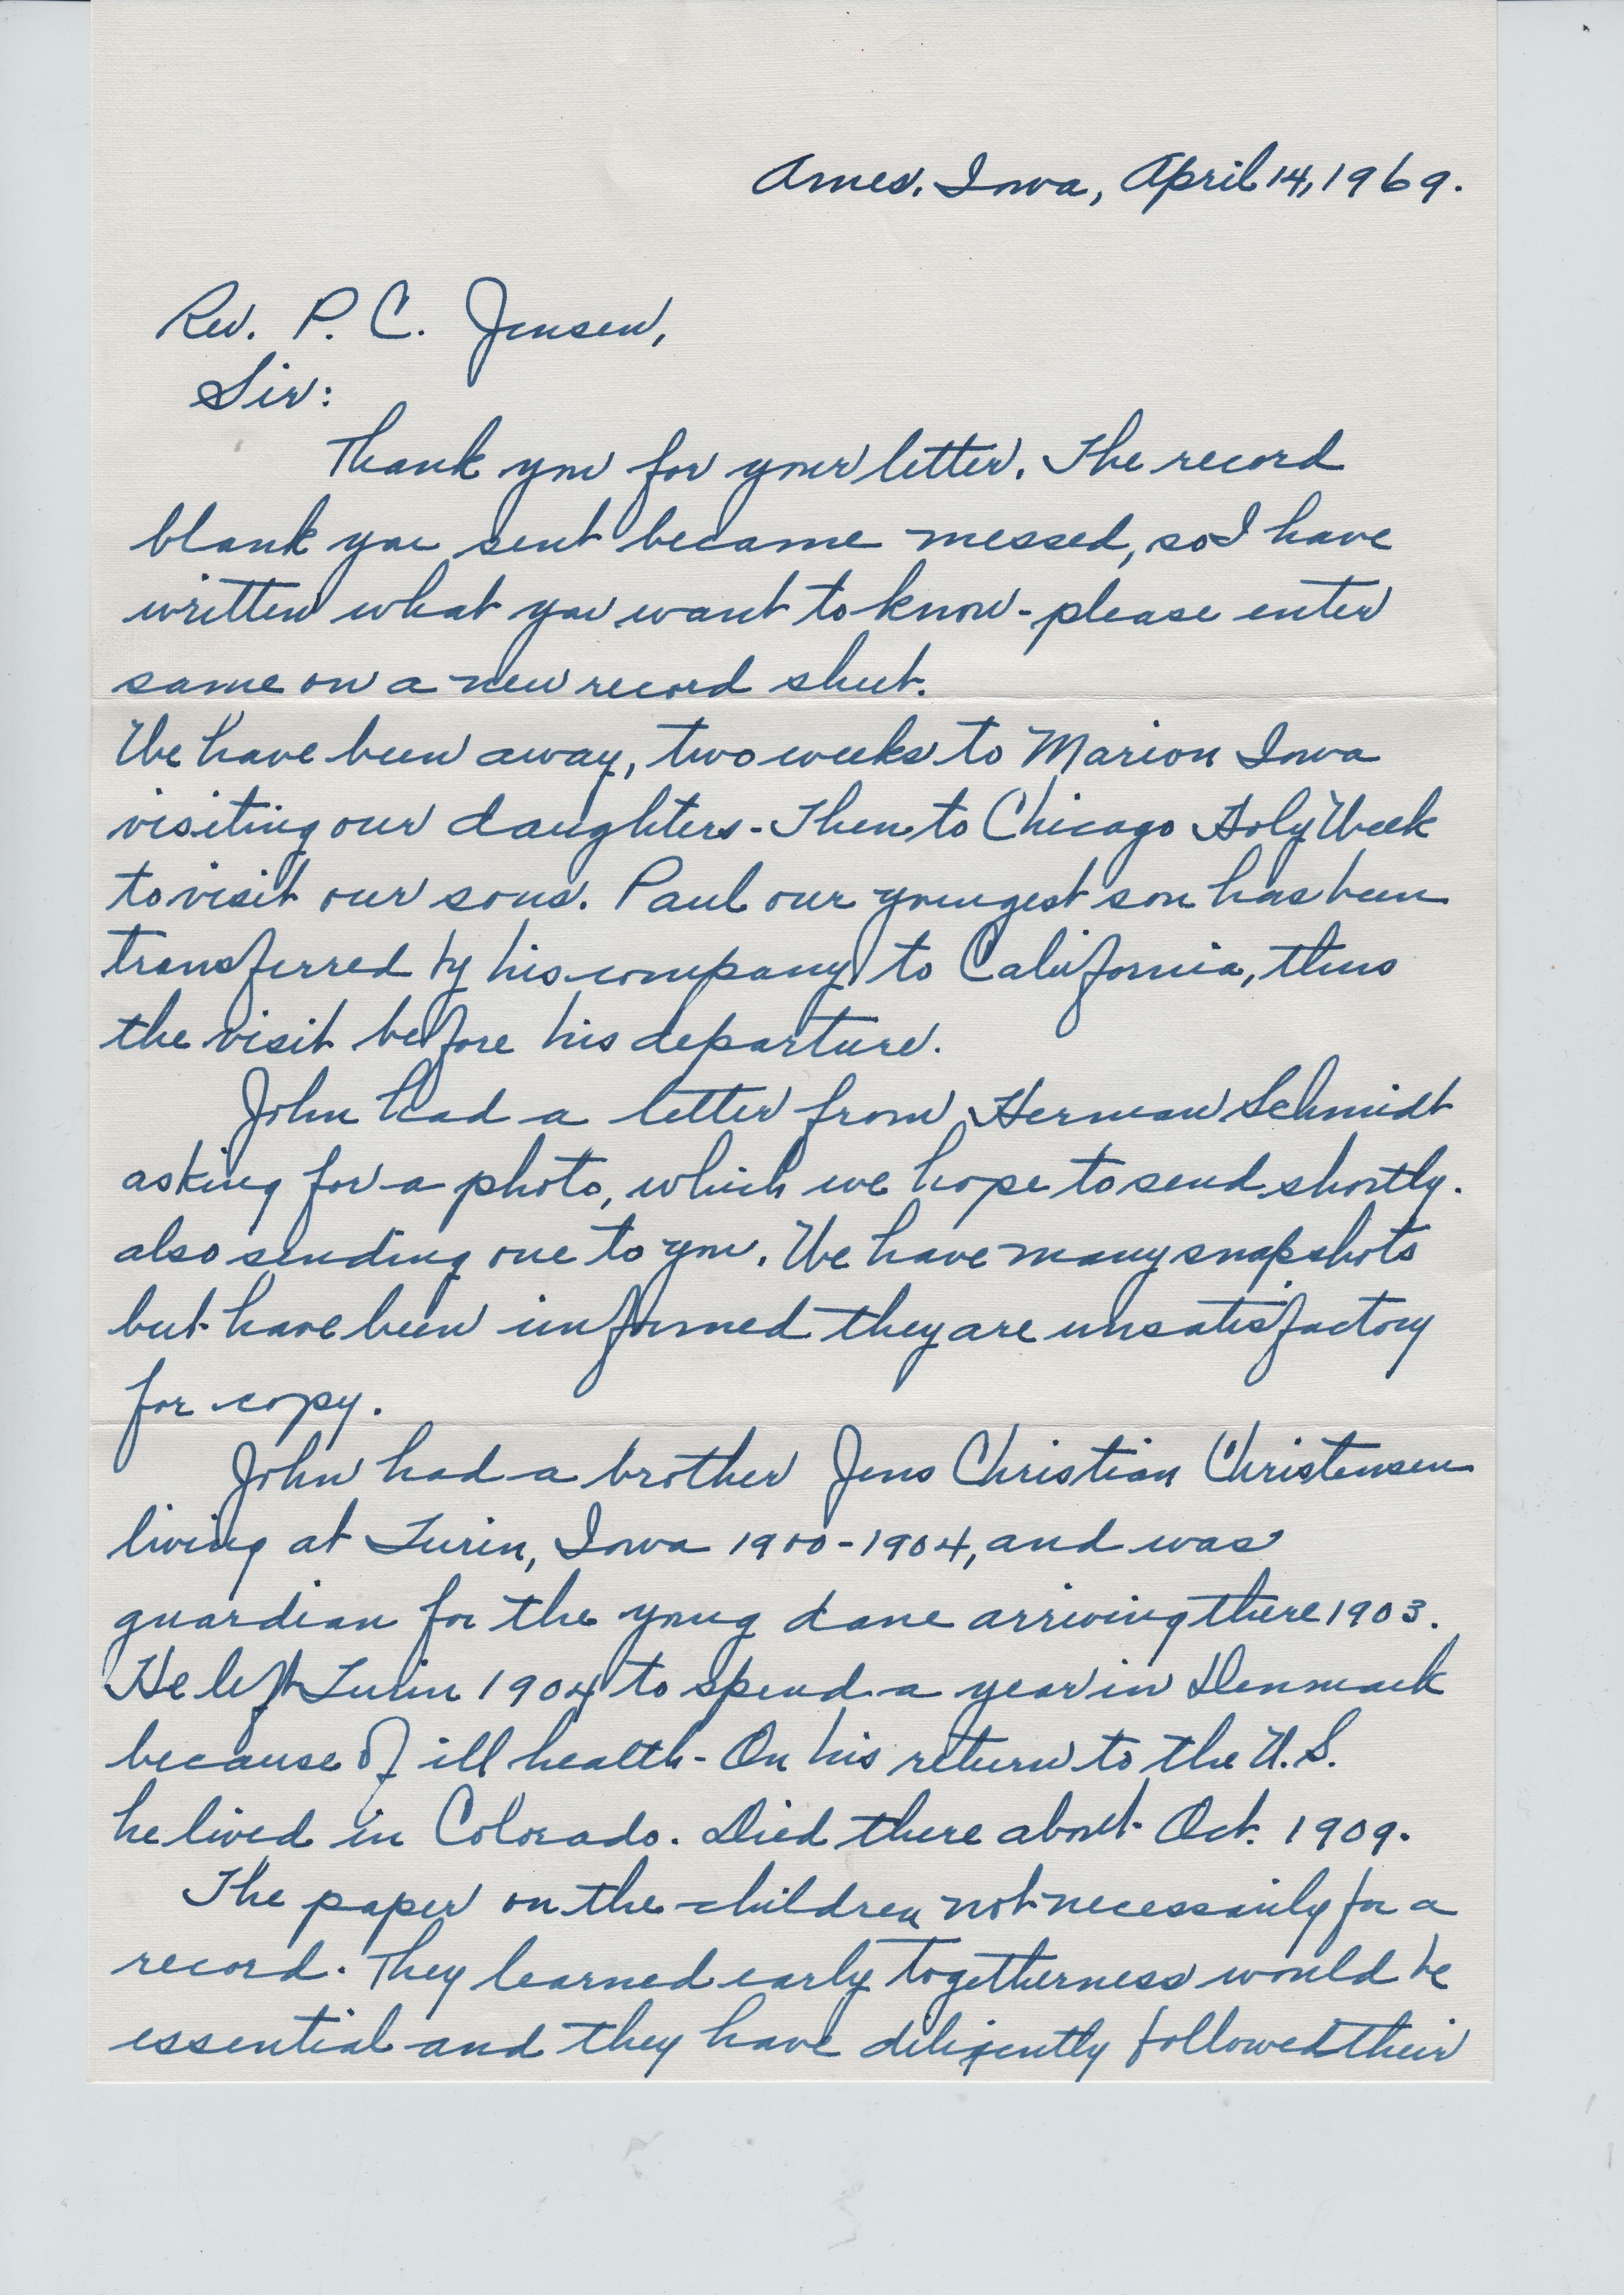 Ames, Iowa, April 14, 1969.
Rev. P. C. Jensen,
Sir:
Thank you for your letter. The record
blank you sent became messed, so I have
written what you want to know - please enter
same on a new record sheet.
We have been away, two weeks to Marion Iowa
visiting our daughters - Then to Chicago Holy Week
to visit our sons. Paul our youngest son has been
transferred by his company to California, thus
the visit before his departure.
John had a letter from Herman Schmidt
asking for a photo, which we hope to send shortly.
also sending one to you. We have many snapshots
but have been informed they are unsatisfactory
for copy.
John had a brother Jens Christian Christensen
living at Turin, Iowa 1900-1904, and was
guardian for the young dane arriving there 1903.
He left Turin 1904 to spend a year in Denmark
because of ill health - On his return to the U.S.
he lived in Colorado. Died there about Oct. 1909.
The paper on the children not necessarily for a
record. They learned early togetherness would be
essential and they have diligently followed their